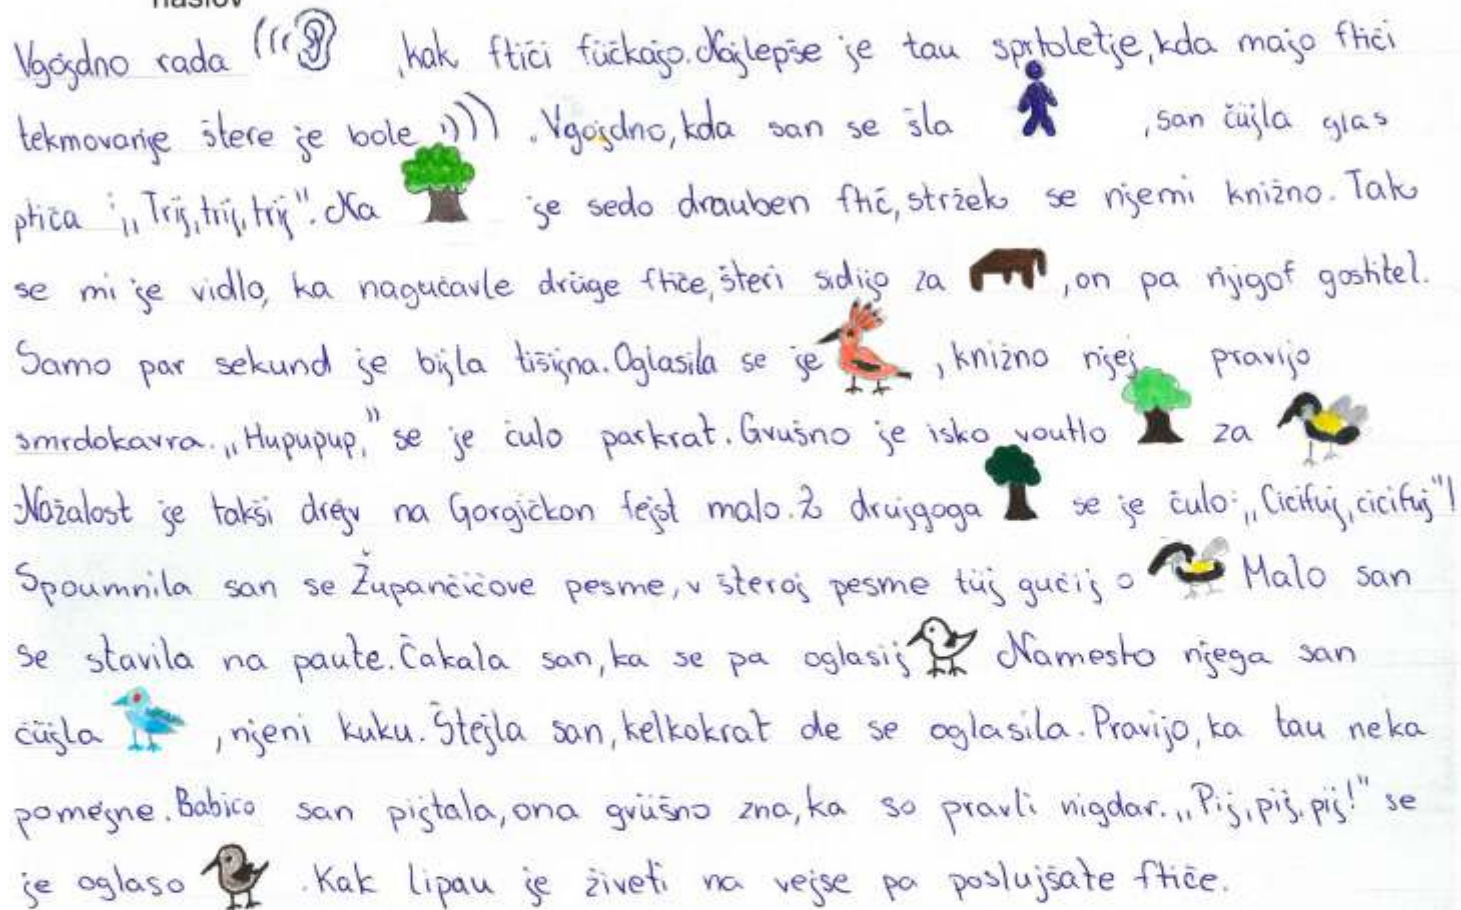 naslov
Vgojdno rada , kak ftiči fučkajo. Najlepše je tau sprtoletje, kda majo ftiči
tekmovanje štere je bole . Vgojdno, kda san se šla , san čüjla glas
ptiča : „Trij, trij, trij". Na je sedo drauben ftič, stržek se njemi knižno. Tak
se mi je vidlo, ka nagučavle drüge ftiče, šteri sidijo za , on pa njigof gostitel.
Samo par sekund je bijla tišijna. Oglasila se je , knižno njej pravijo
smrdokavra. „Hupupup," se je čulo parkrat. Gvušno je isko voutlo za
Nažalost je takši drejv na Gorgičkon fejst malo. Z drujgoga se je čulo: „Cicifuj, cicifuj"!
Spoumnila san se Župančičove pesme, v šteroj pesme tüj gučij o Malo san
se stavila na paute. Čakala san, ka se pa oglasij Namesto njega san
čüjla , njeni kuku. Štejla san, kelkokrat de se oglasila. Pravijo, ka tau neka
pomejne. Babico san pijtala, ona gvüšno zna, ka so pravli nigdar. „Pij, pij, pij!" se
je oglaso . Kak lipau je živeti na vejse pa poslujšate ftiče.